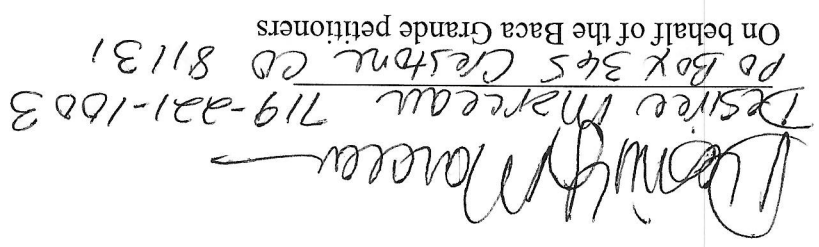 Desiree Marceau 719-221-1003
PO Box 345 Crestone CO 81131
On behalf of the Baca Grande petitioners